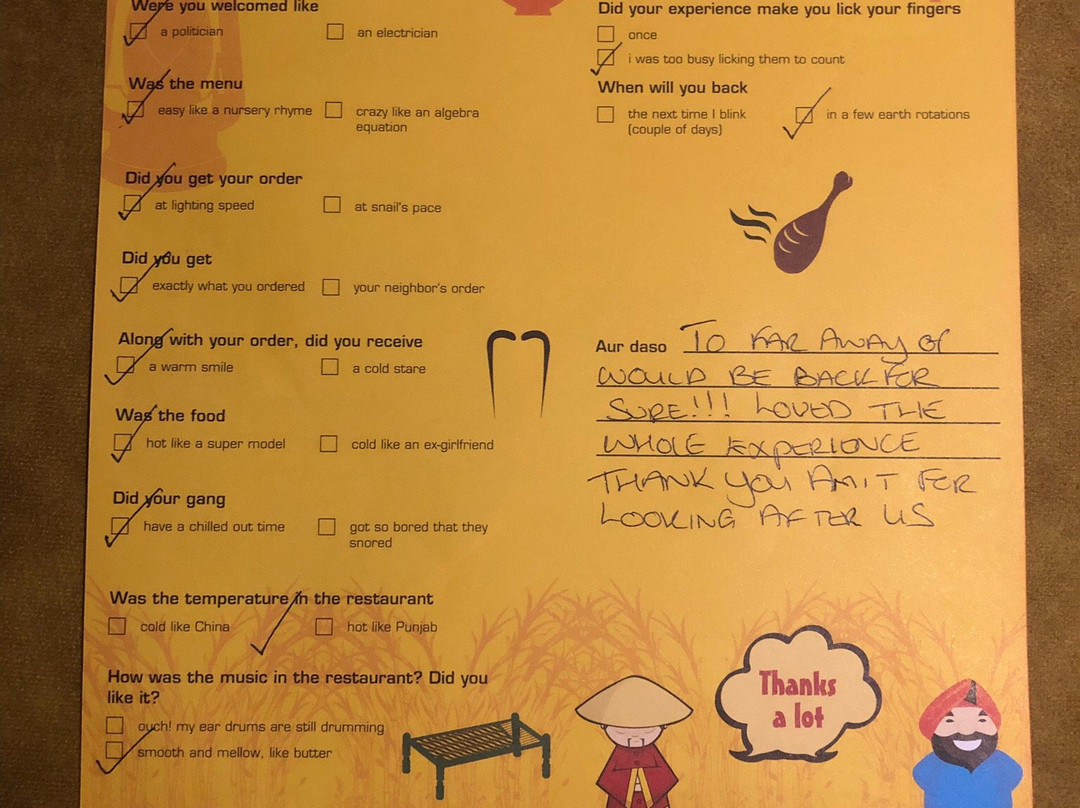 Were you welcomed like
a politician
an electrician
Was the menu
easy like a nursery rhyme
crazy like an algebra
equation
Did you get your order
at lighting speed
at snail's pace
Did you get
exactly what you ordered
your neighbor's order
Along with your order, did you receive
a warm smile
a cold stare
Was the food
hot like a super model
cold like an ex-girlfriend
Did your gang
have a chilled out time
got so bored that they
snored
Was the temperature in the restaurant
cold like China
hot like Punjab
How was the music in the restaurant? Did you
like it?
ouch! my ear drums are still drumming
smooth and mellow, like butter
Did your experience make you lick your fingers
once
i was too busy licking them to count
When will you back
the next time I blink
(couple of days)
in a few earth rotations
Aur daso TO FAR AWAY OR
WOULD BE BACK FOR
SURE!!! LOVED THE
WHOLE EXPERIENCE
THANK YOU AMIT FOR
LOOKING AFTER US
Thanks
a lot